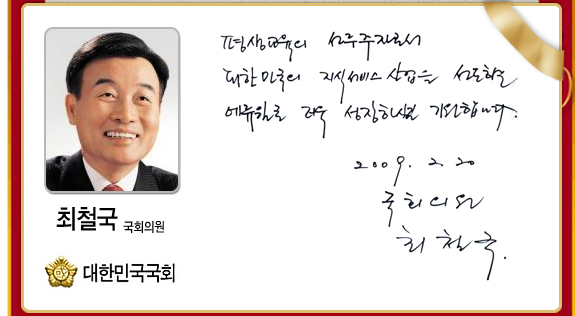 평생교육의 선두주자로서
대한민국의 지식서비스 산업을 선도하는
에듀윌로 더욱 성장하시길 기원합니다.
2009. 2. 20
국회의원
최철국.
최철국 국회의원
대한민국국회